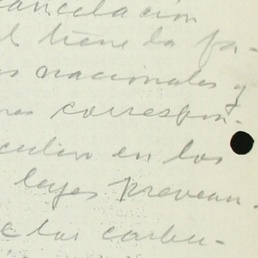 ancelación
l tiene la fa-
s nacionales y
nes correspon-
culen en los
leyes prevean.
e las carbu-